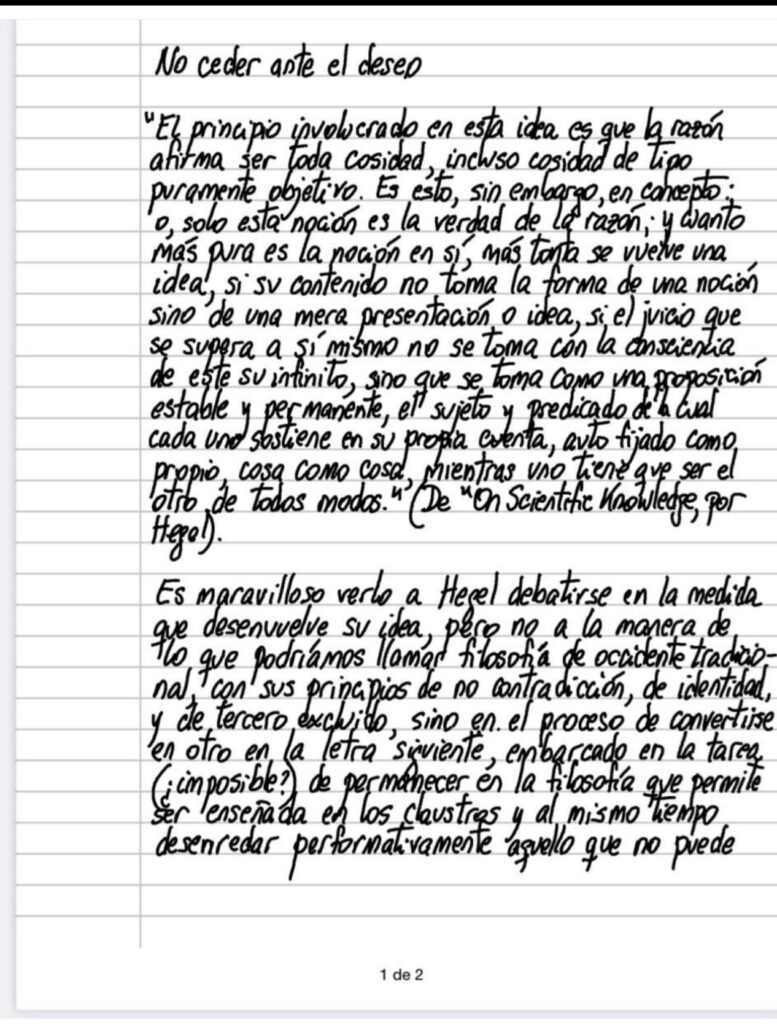 No ceder ante el deseo
"El principio involucrado en esta idea es que la razón
afirma ser toda cosidad, incluso cosidad de tipo
puramente objetivo. Es esto, sin embargo, en concepto;
o, solo esta noción es la verdad de la razón; y cuanto
más pura es la noción en sí, más tonta se vuelve una
idea, si su contenido no toma la forma de una noción
sino de una mera presentación o idea, si el juicio que
se supera a sí mismo no se toma con la consciencia
de este su infinito, sino que se toma como una proposición
estable y permanente, el sujeto y predicado de la cual
cada uno sostiene en su propia cuenta, auto fijado como
propio, cosa como cosa, mientras uno tiene que ser el
otro de todos modos." (De "On Scientific Knowledge, por
Hegel).
Es maravilloso verlo a Hegel debatirse en la medida
que desenvuelve su idea, pero no a la manera de
lo que podríamos llamar filosofía de occidente tradicio-
nal, con sus principios de no contradicción, de identidad,
y de tercero excluido, sino en el proceso de convertirse
en otro en la letra siguiente, embarcado en la tarea
(¿imposible?) de permanecer en la filosofía que permite
ser enseñada en los claustros y al mismo tiempo
desenredar performativamente aquello que no puede
1 de 2